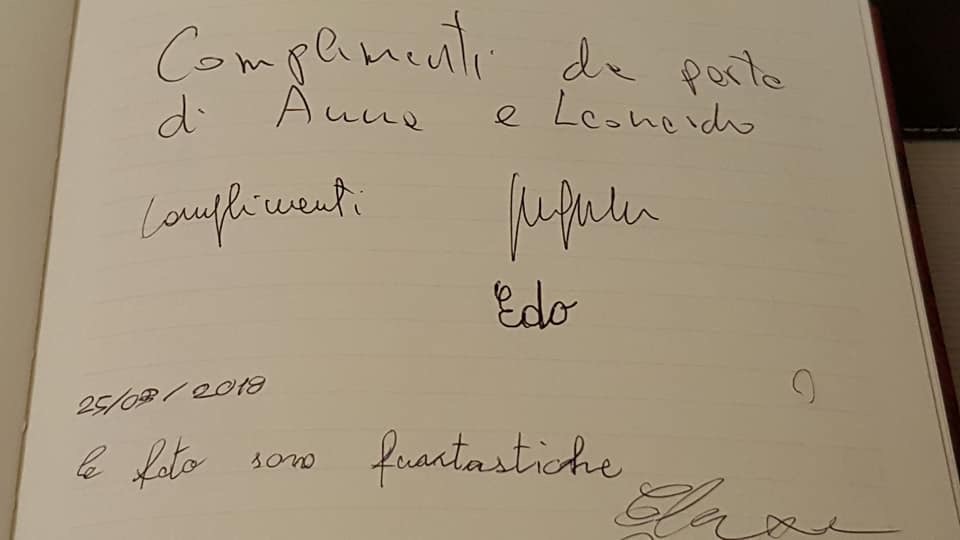 Complimenti da parte
di Anna e Leonardo
complimenti
Edo
25/03/2018
le foto sono fantastiche